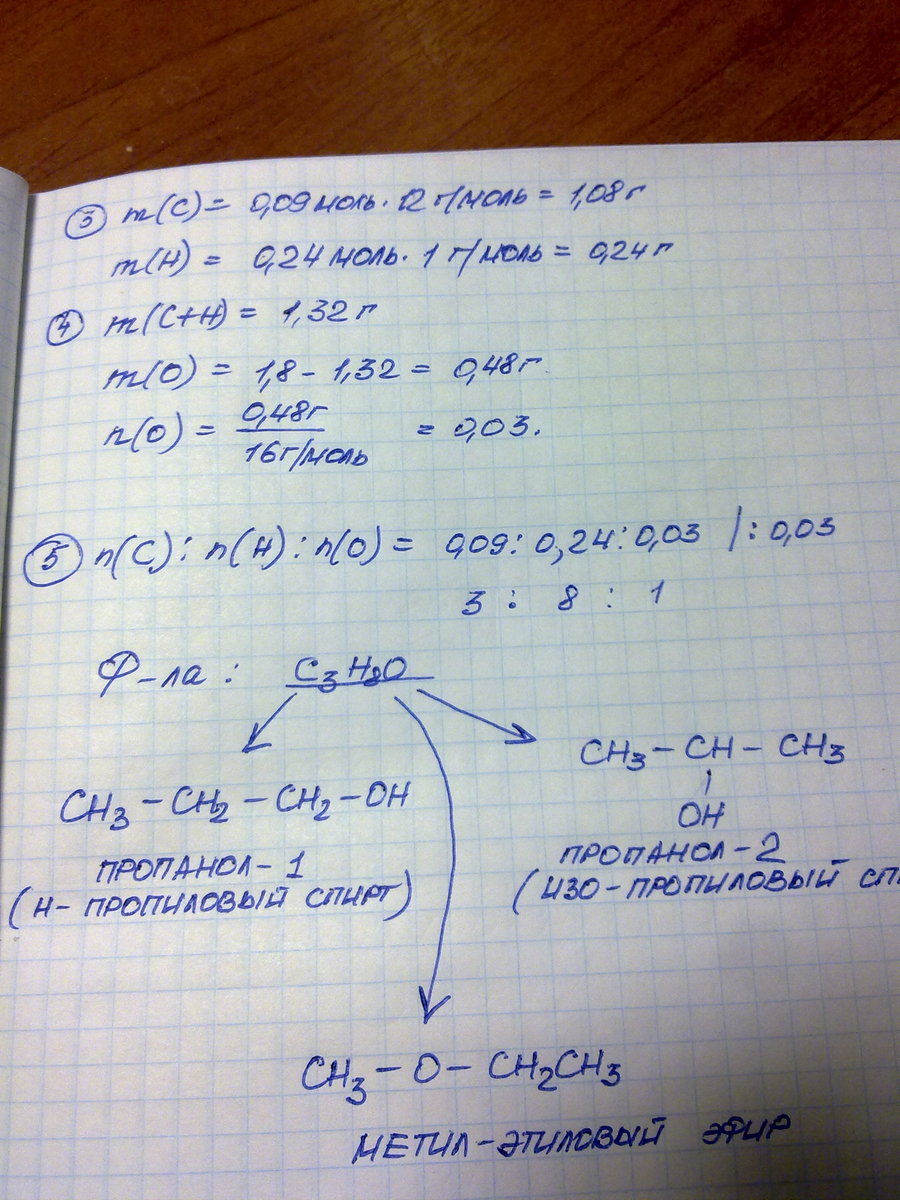 ③ m(C) = 0,09 моль · 12 г/моль = 1,08 г
m(H) = 0,24 моль · 1 г/моль = 0,24 г
④ m(C+H) = 1,32 г
m(O) = 1,8 - 1,32 = 0,48 г
n(O) = 0,48г / 16г/моль = 0,03.
⑤ n(C) : n(H) : n(O) = 0,09 : 0,24 : 0,03 | : 0,03
3 : 8 : 1
Ф-ла : C₃H₈O
CH₃ – CH – CH₃
OH
CH₃ – CH₂ – CH₂ – OH
ПРОПАНОЛ-1
(Н- ПРОПИЛОВЫЙ СПИРТ)
ПРОПАНОЛ-2
(ИЗО-ПРОПИЛОВЫЙ СПИ
CH₃ – O – CH₂CH₃
МЕТИЛ-ЭТИЛОВЫЙ ЭФИР